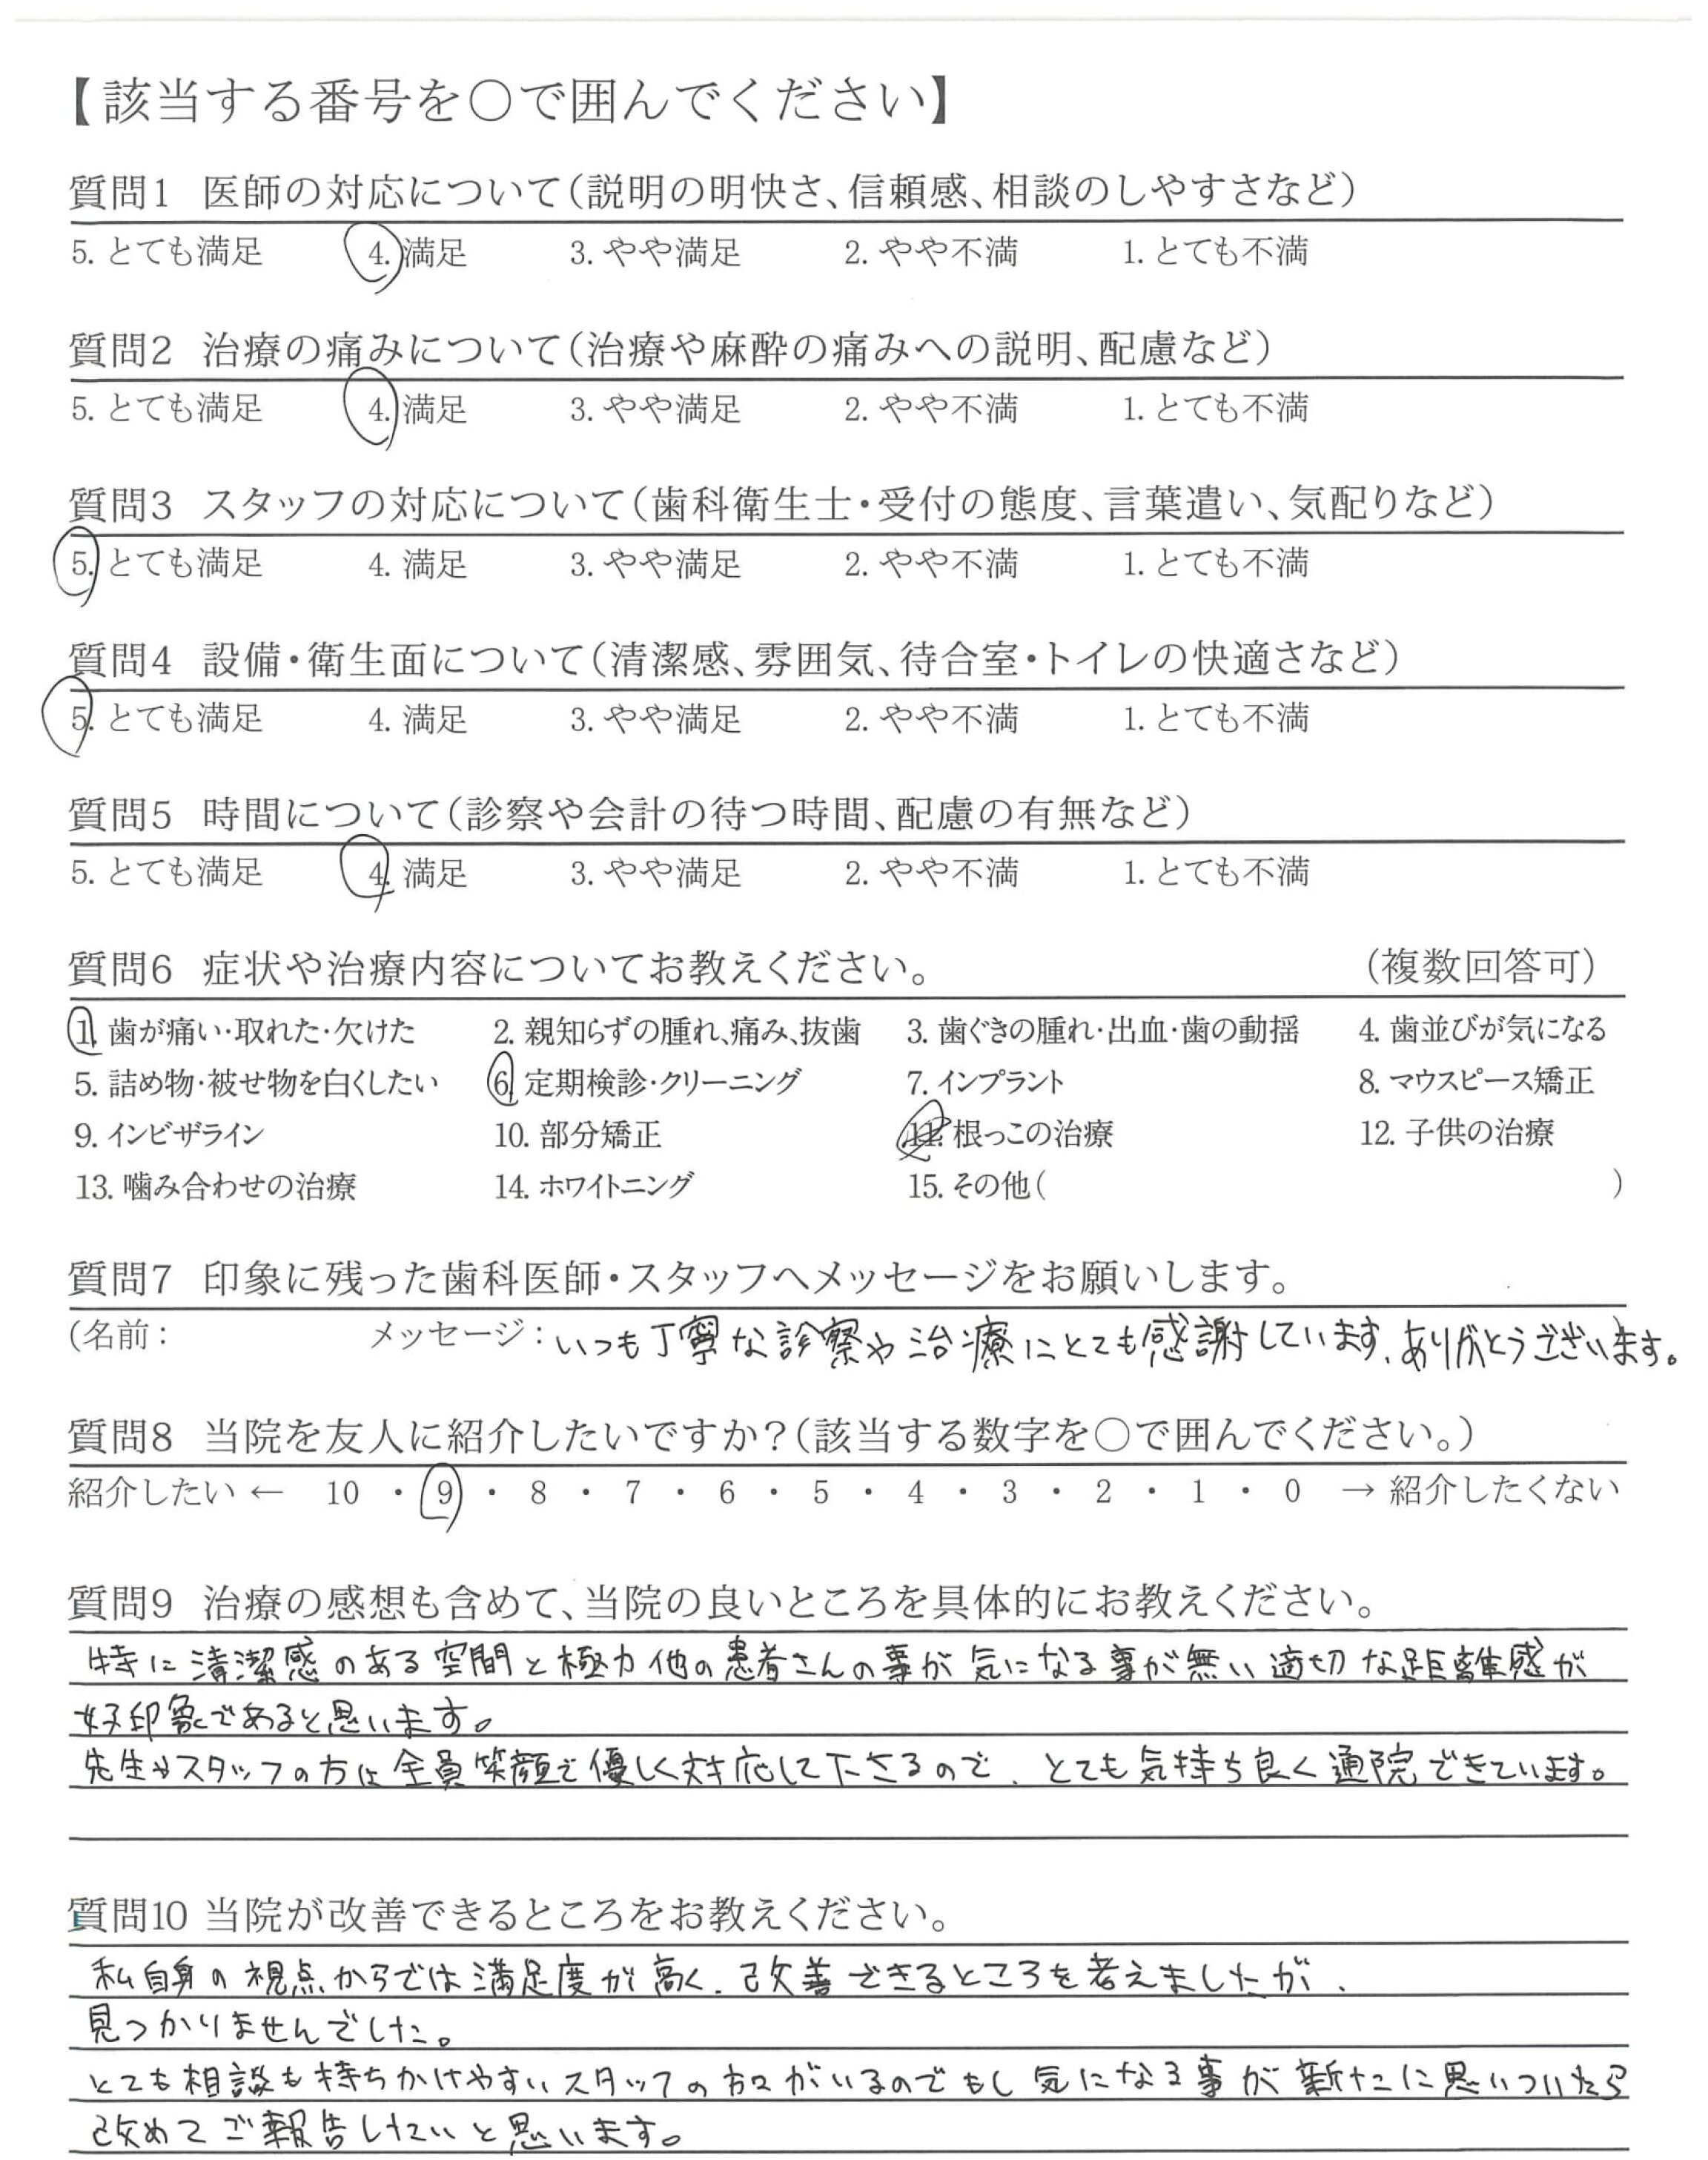 【該当する番号を○で囲んでください】
質問1 医師の対応について（説明の明快さ、信頼感、相談のしやすさなど）
5. とても満足 4. 満足 3. やや満足 2. やや不満 1. とても不満
質問2 治療の痛みについて（治療や麻酔の痛みへの説明、配慮など）
5. とても満足 4. 満足 3. やや満足 2. やや不満 1. とても不満
質問3 スタッフの対応について（歯科衛生士・受付の態度、言葉遣い、気配りなど）
5. とても満足 4. 満足 3. やや満足 2. やや不満 1. とても不満
質問4 設備・衛生面について（清潔感、雰囲気、待合室・トイレの快適さなど）
5. とても満足 4. 満足 3. やや満足 2. やや不満 1. とても不満
質問5 時間について（診察や会計の待つ時間、配慮の有無など）
5. とても満足 4. 満足 3. やや満足 2. やや不満 1. とても不満
質問6 症状や治療内容についてお教えください。 （複数回答可）
1. 歯が痛い・取れた・欠けた 2. 親知らずの腫れ、痛み、抜歯 3. 歯ぐきの腫れ・出血・歯の動揺 4. 歯並びが気になる
5. 詰め物・被せ物を白くしたい 6. 定期検診・クリーニング 7. インプラント 8. マウスピース矯正
9. インビザライン 10. 部分矯正 11. 根っこの治療 12. 子供の治療
13. 噛み合わせの治療 14. ホワイトニング 15. その他（ ）
質問7 印象に残った歯科医師・スタッフへメッセージをお願いします。
（名前： メッセージ：いつも丁寧な診察や治療にとても感謝しています、ありがとうございます。
質問8 当院を友人に紹介したいですか？（該当する数字を○で囲んでください。）
紹介したい ← 10 ・ 9 ・ 8 ・ 7 ・ 6 ・ 5 ・ 4 ・ 3 ・ 2 ・ 1 ・ 0 → 紹介したくない
質問9 治療の感想も含めて、当院の良いところを具体的にお教えください。
特に清潔感のある空間と極力他の患者さんの事が気になる事が無い適切な距離感が
好印象であると思います。
先生やスタッフの方は全員笑顔で優しく対応して下さるので、とても気持ち良く通院できています。
質問10 当院が改善できるところをお教えください。
私自身の視点からでは満足度が高く、改善できるところを考えましたが、
見つかりませんでした。
とても相談も持ちかけやすいスタッフの方々がいるのでもし気になる事が新たに思いついたら
改めてご報告したいと思います。